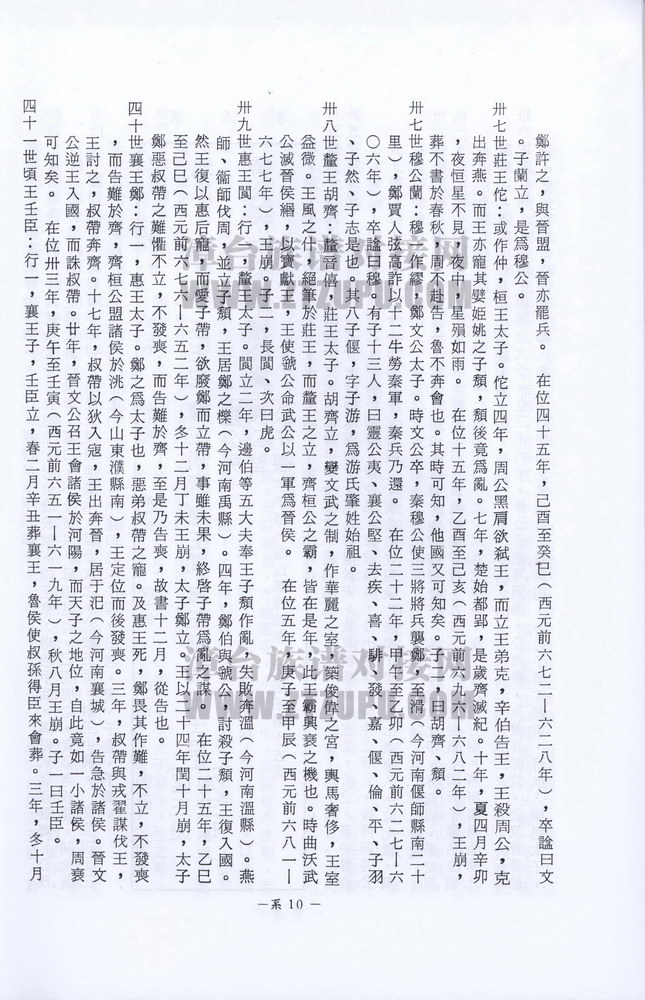 鄭許之，與晉盟，晉亦罷兵。　在位四十五年，己酉至癸巳（西元前六七二—六二八年），卒諡曰文
。子蘭立，是爲穆公。
卅七世莊王佗：或作仲，桓王太子。佗立四年，周公黑肩欲弒王，而立王弟克，辛伯告王，王殺周公，克
出奔燕。而王亦寵其嬖姬姚之子頹，頹後竟爲亂。七年，楚始都郢，是歲齊滅紀。十年，夏四月辛卯
，夜恒星不見，夜中，星殞如雨。　在位十五年，乙酉至己亥（西元前六九六—六八二年），王崩，
葬不書於春秋，周不赴告，魯不奔會也。其時可知，他國又可知矣。子二，曰胡齊、頹。
卅七世穆公蘭：穆一作繆，鄭文公太子。時文公卒，秦穆公使三將將兵襲鄭至滑（今河南偃師縣南二十
里），鄭賈人弦高詐以十二牛勞秦軍，秦兵乃還。　在位二十二年，甲午至乙卯（西元前六二七—六
〇六年），卒諡曰穆。有子十三人，曰靈公夷、襄公堅、去疾、喜、騑、發、嘉、偃、倫、平、子羽
、子然、子志是也。其八子偃，字子游，爲游氏肇姓始祖。
卅八世釐王胡齊：釐音僖，莊王太子。胡齊立，變文武之制，作華麗之室，築俊偉之宮，輿馬奢侈，王室
益微。王風之什，絕筆於莊王，而釐王之立，齊桓公之霸，皆在是年，此王霸興衰之機也。時曲沃武
公滅晉侯緡，以寶獻王，王使虢公命武公以一軍爲晉侯。　在位五年，庚子至甲辰（西元前六八一—
六七七年），王崩。子二，長閬、次曰虎。
卅九世惠王閬：行一，釐王太子。閬立二年，邊伯等五大夫奉王子頹作亂，失敗奔溫（今河南溫縣）。燕
師、衞師伐周，並立子頹，王居鄭之櫟（今河南禹縣）。四年，鄭伯與虢公，討殺子頹，王復入國。
然王復以惠后寵，而愛子帶，欲廢鄭而立帶，事雖未果，終啓子帶爲亂之謀。　在位二十五年，乙巳
至己巳（西元前六七六—六五二年），冬十二月丁未王崩，太子鄭立。王以二十四年閏十月崩，太子
鄭惡叔帶之難懼不立，不發喪，而告難於齊，至是乃告喪，故書十二月，從告也。
四十世襄王鄭：行一，惠王太子。鄭之爲太子也，惡弟叔帶之寵。及惠王死，鄭畏其作難，不立，不發喪
，而告難於齊，齊桓公盟諸侯於洮（今山東濮縣南），王定位而後發喪。三年，叔帶與戎翟謀伐王，
王討之，叔帶奔齊。十七年，叔帶以狄入寇，王出奔晉，居于汜（今河南襄城），告急於諸侯。晉文
公逆王入國，而誅叔帶。廿年，晉文公召王會諸侯於河陽，而天子之地位，自此竟如一小諸侯，周衰
可知矣。　在位卅三年，庚午至壬寅（西元前六五一—六一九年），秋八月王崩。子一曰壬臣。
四十一世頃王壬臣：行一，襄王子，壬臣立，春二月辛丑葬襄王，魯侯使叔孫得臣來會葬。三年，冬十月
—系 10 —
漳台族谱对接网
WWW.ZTZUPU.COM
漳台族谱对接网
WWW.ZTZUPU.COM